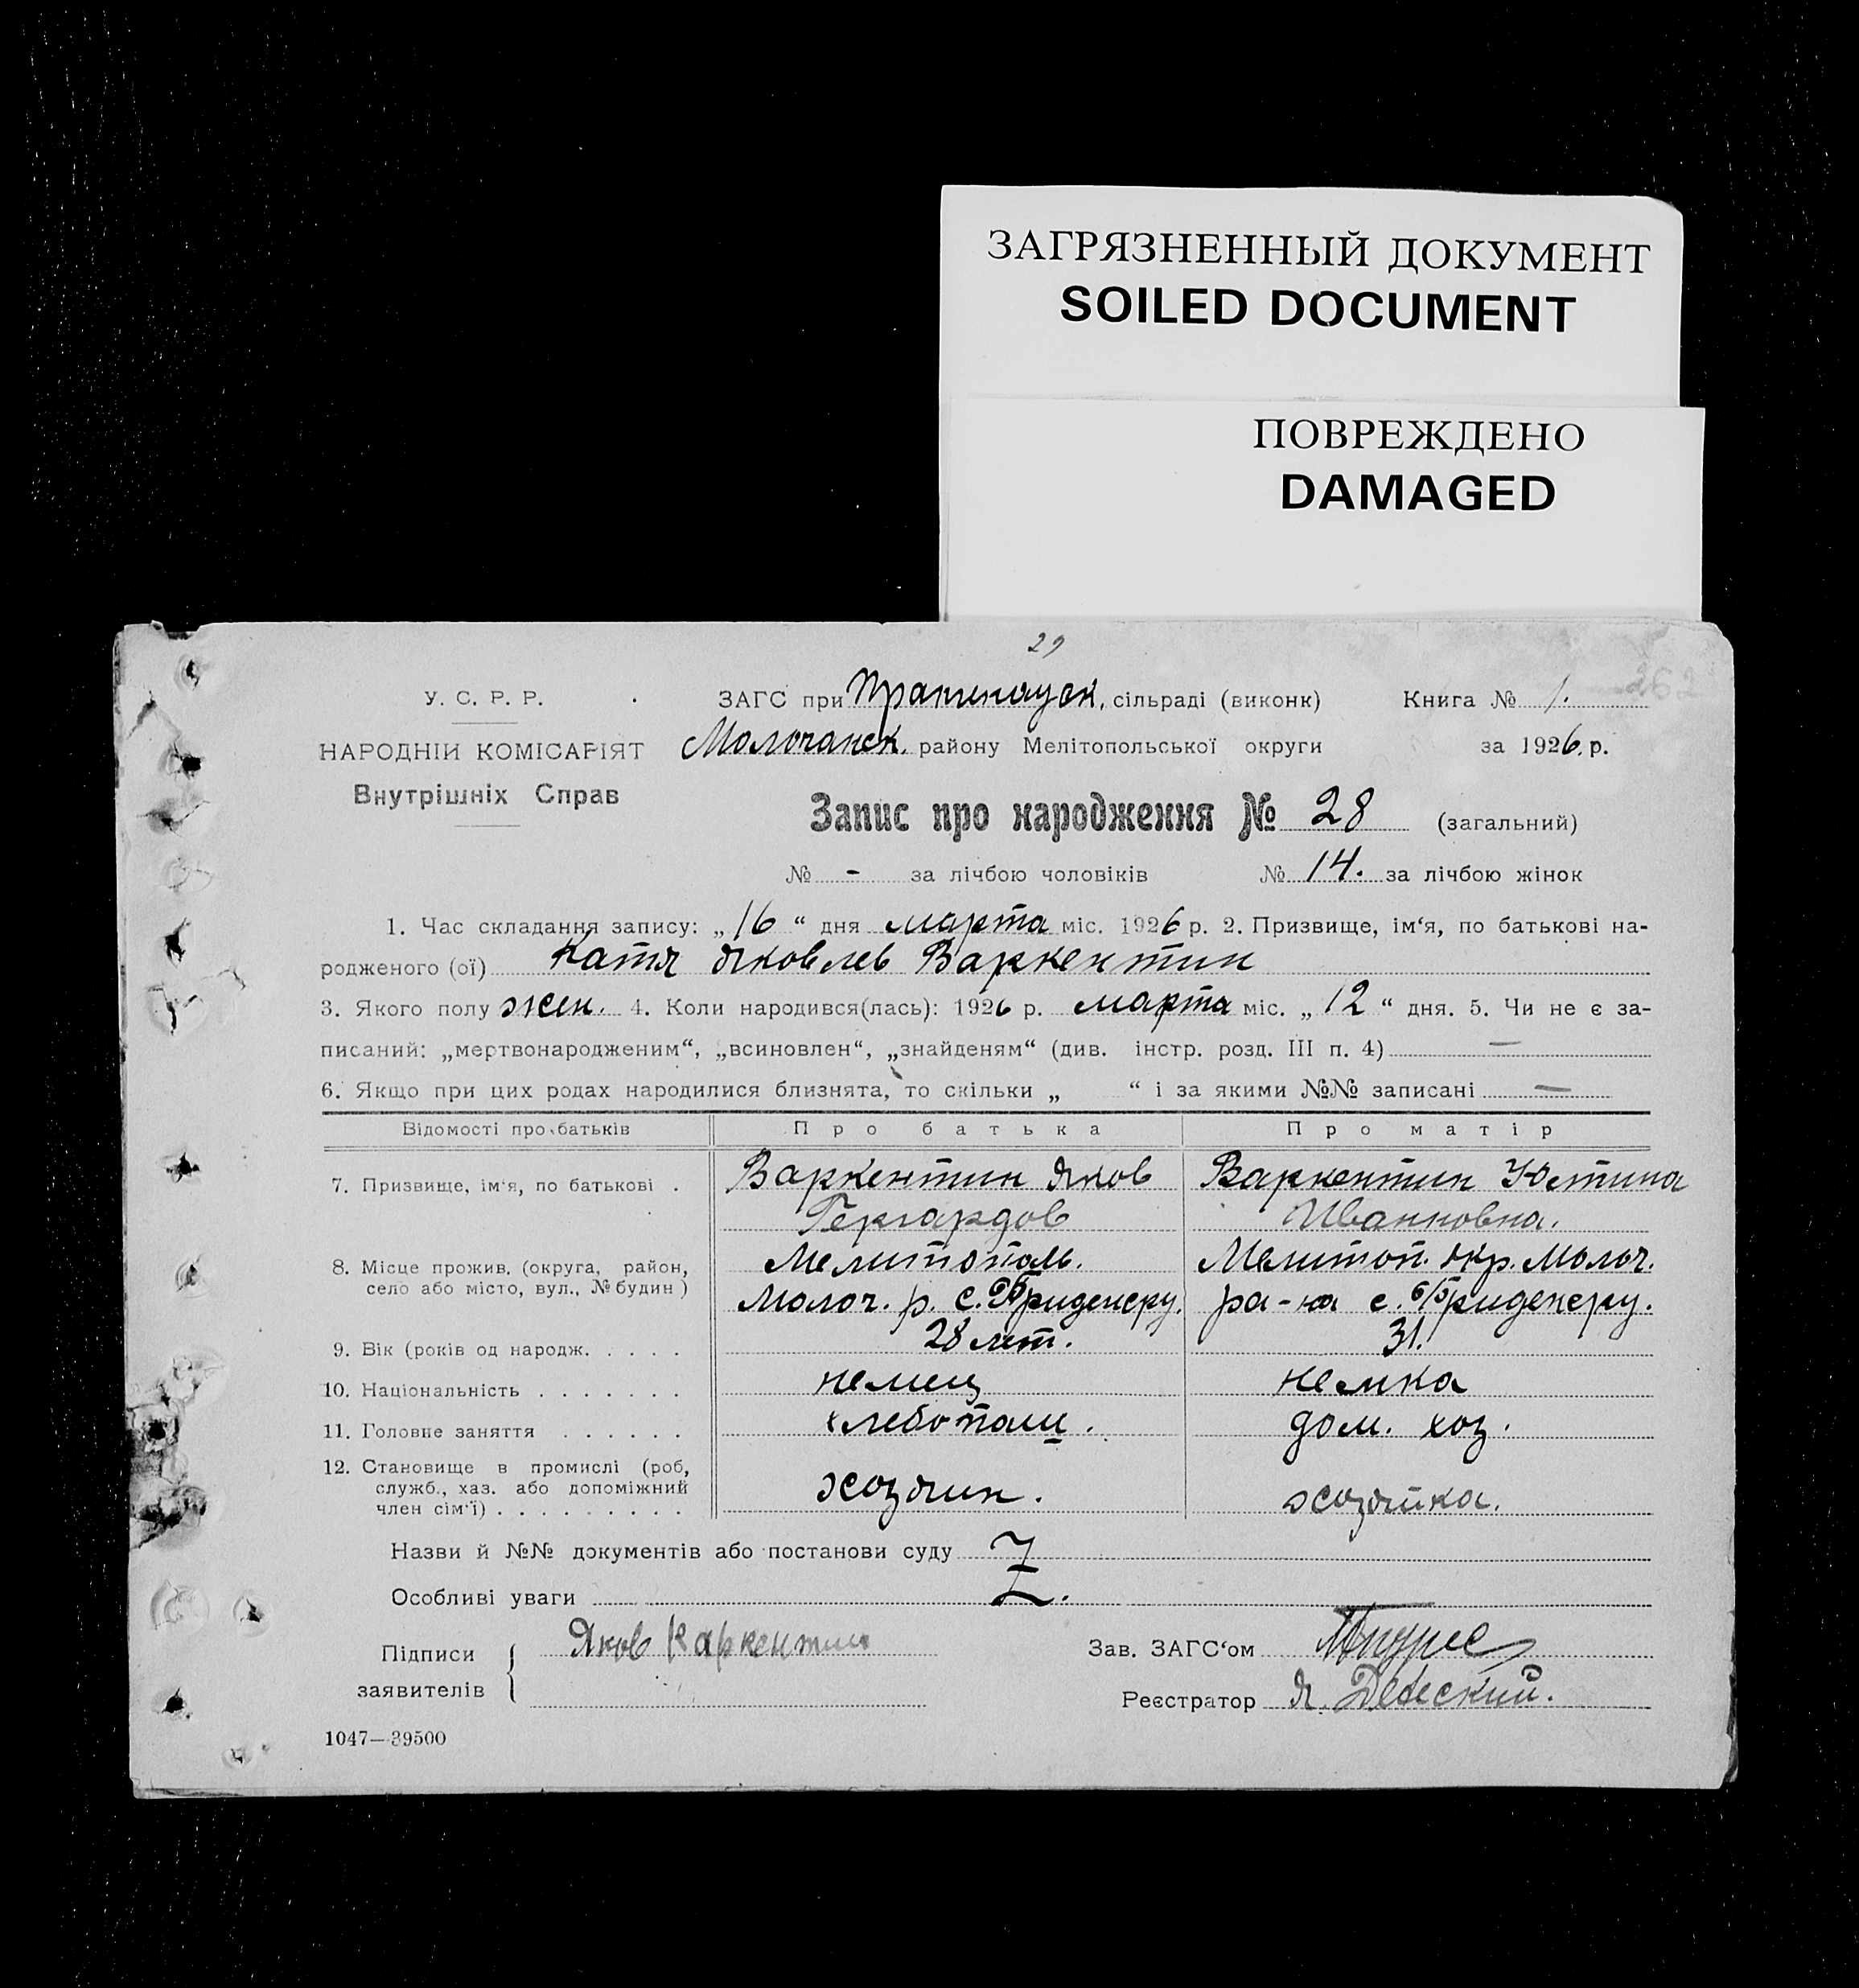 ЗАГРЯЗНЕННЫЙ ДОКУМЕНТ
SOILED DOCUMENT
ПОВРЕЖДЕНО
DAMAGED
29
262
У. С. Р. Р.
ЗАГС при сільраді (виконк) Книга № 1.
НАРОДНІЙ КОМІСАРІЯТ Молочанск. району Мелітопольської округи за 1926.р.
Внутрішніх Справ
Запис про народження № 28 (загальний)
№ - за лічбою чоловіків № 14. за лічбою жінок
1. Час складання запису: „16“ дня марта міс. 1926 р. 2. Призвище, ім‘я, по батькові на-
родженого (ої) Катя Яковлев Варкентин
3. Якого полу жен. 4. Коли народився(лась): 1926 р. марта міс. „12“ дня. 5. Чи не є за-
писаний: „мертвонародженим“, „всиновлен“, „знайденям“ (див. інстр. розд. III п. 4) —
6. Якщо при цих родах народилися близнята, то скільки „ “ і за якими №№ записані —
Відомості про батьків Про батька Про матір
7. Призвище, ім‘я, по батькові . Варкентин Яков Варкентин Юстина
Гергардов Ивановна.
8. Місце прожив. (округа, район, Мелитополь. Мелитоп. окр. Молоч.
село або місто, вул., № будин) Молоч. р. с. ра-на с.
9. Вік (років од народж. . . . . 28 лет. 31.
10. Національність . . . . . . . немец немка
11. Головне заняття . . . . . . хлебопаш. дом. хоз.
12. Становище в промислі (роб,
служб., хаз. або допоміжний хозяин. хозяйка.
член сім‘ї) . . . . . . . . .
Назви й №№ документів або постанови суду
Особливі уваги
Підписи Яков Варкентин Зав. ЗАГС‘ом
заявителів Реєстратор Я.
1047—39500